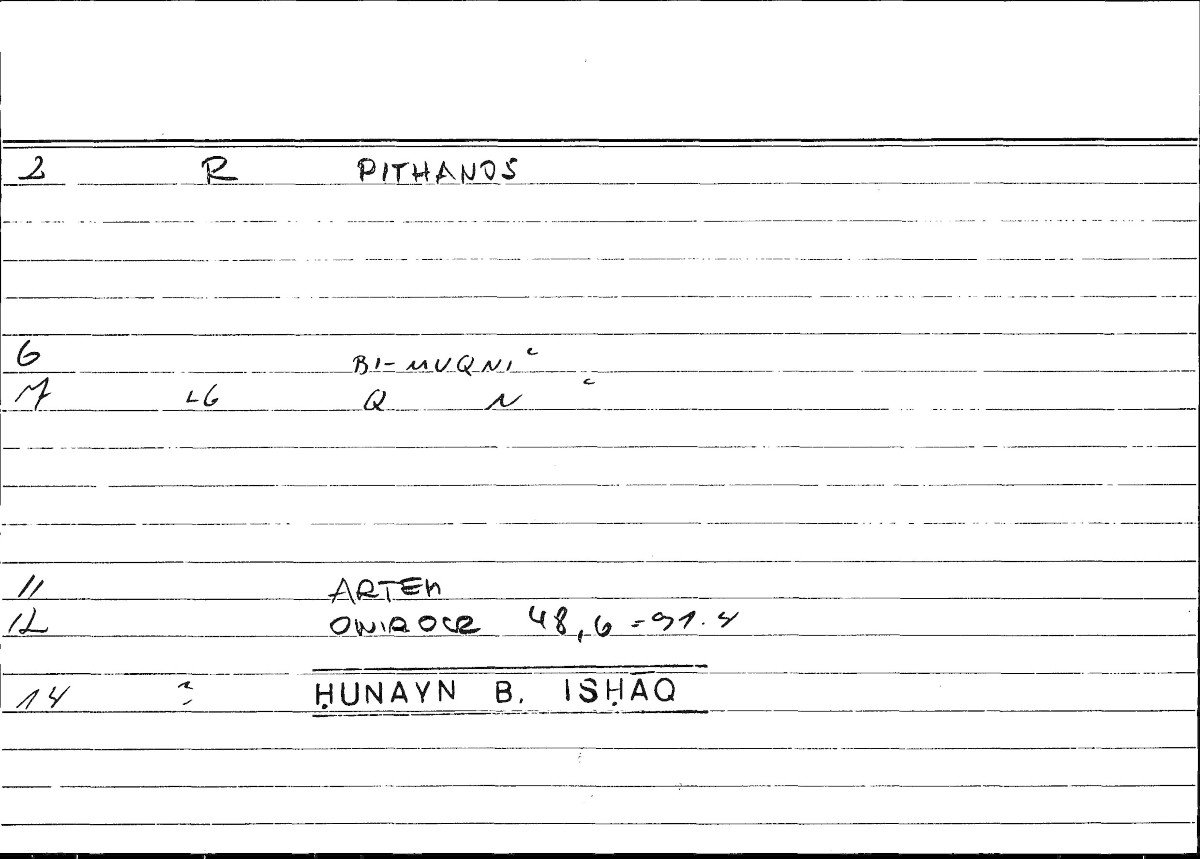 2 R PITHANOS
6 BI-MUQNIʿ
7 LG Q N ʿ
11 ARTEM
12 ONIROCR 48,6 = 91.4
14 HUNAYN B. ISḤAQ